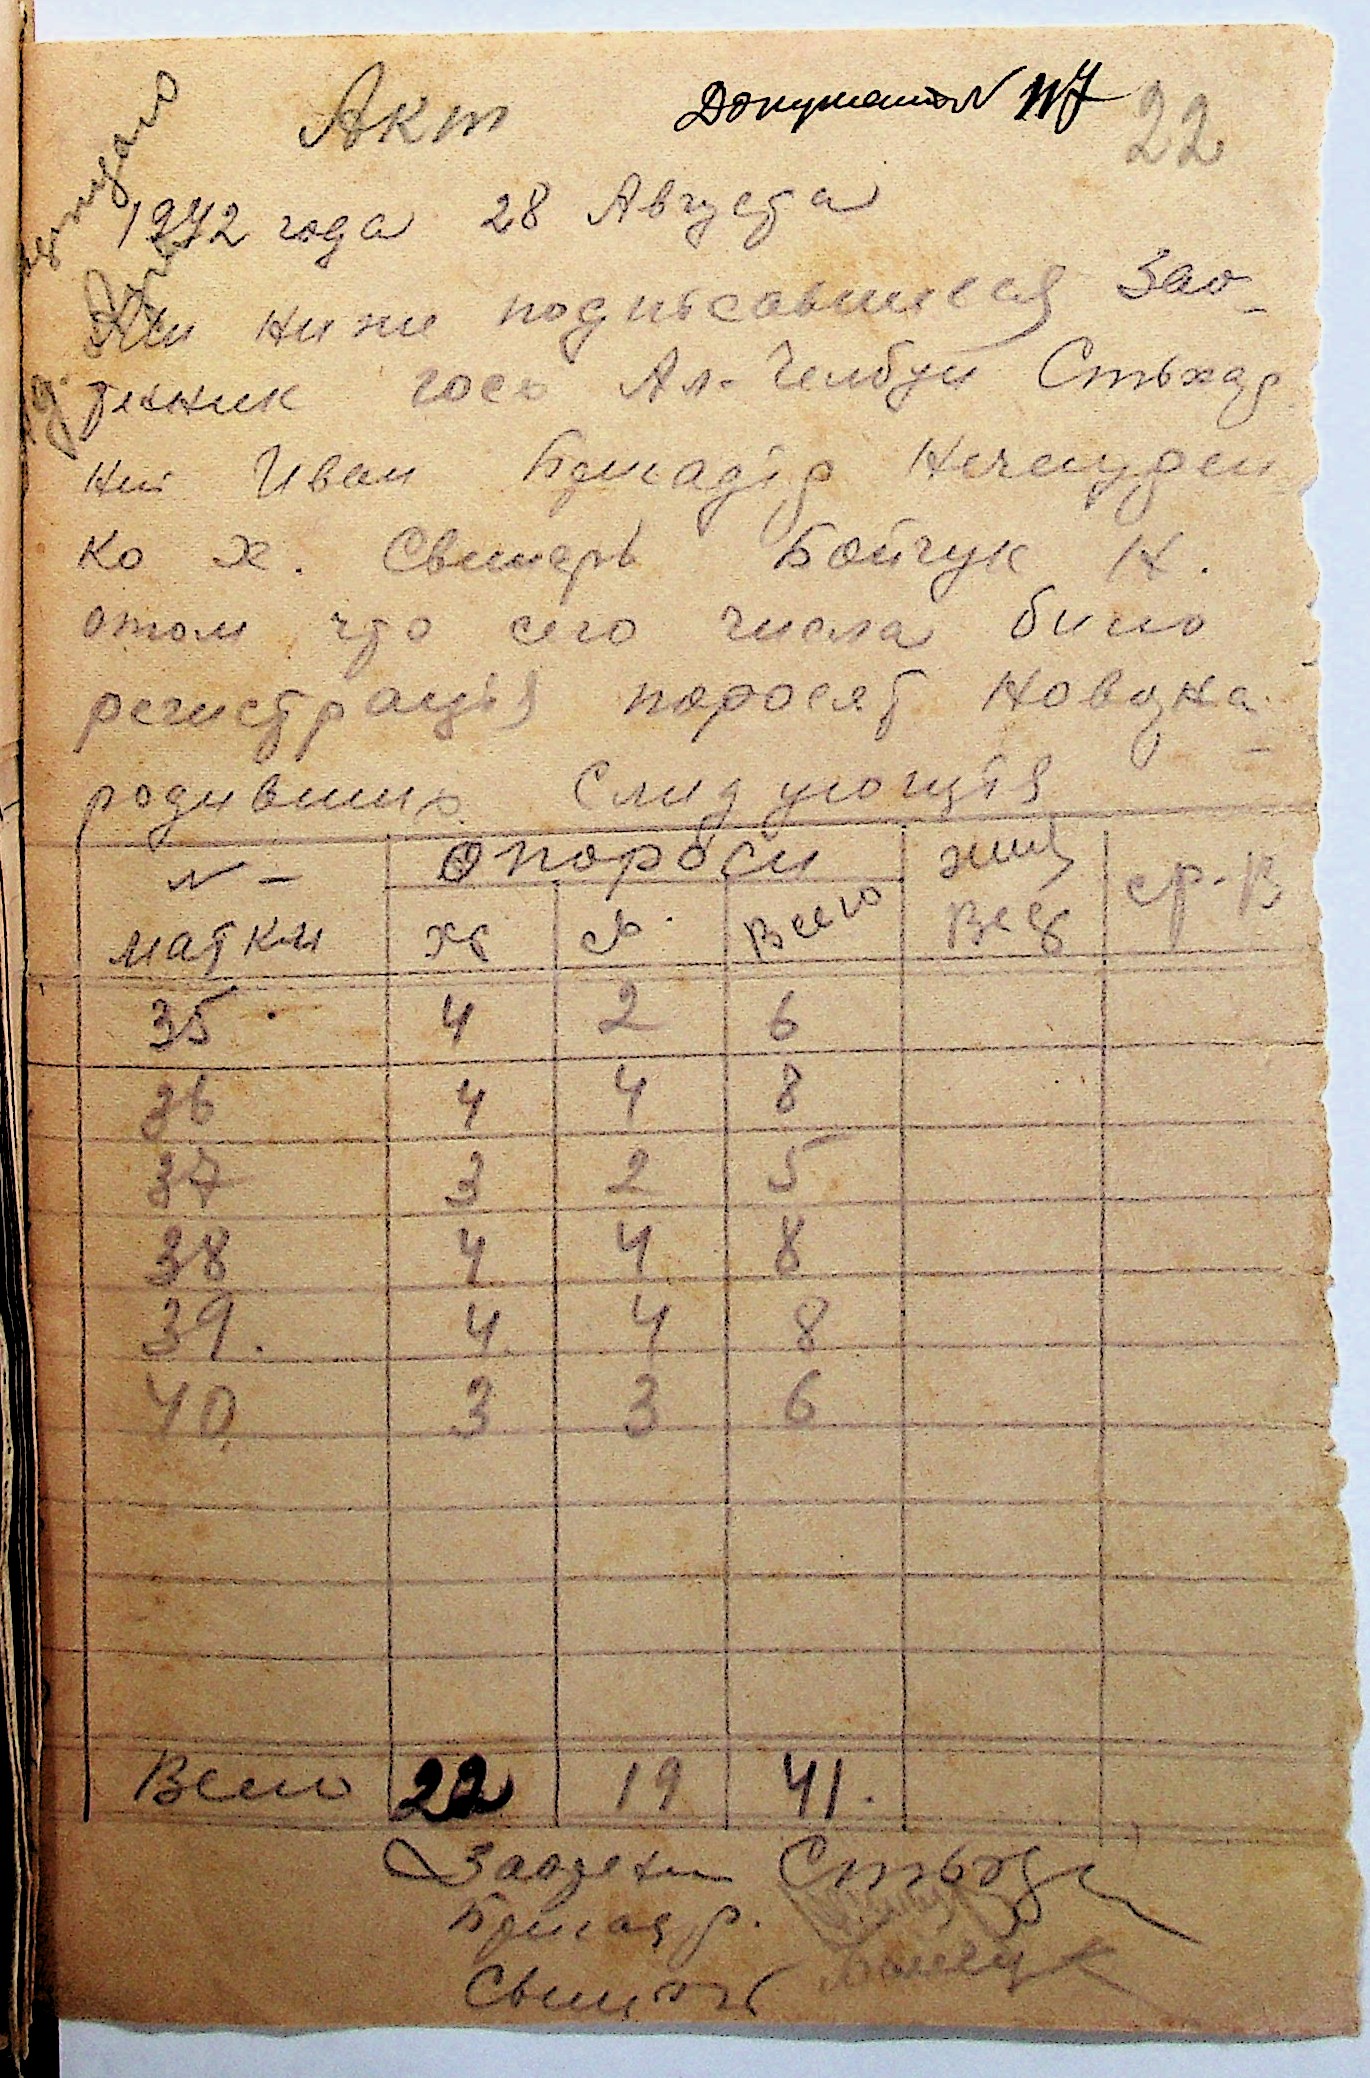 Акт
Документ №7
22
1942 года 28 Августа
Ми ниже подписавшиеся Зао-
техник госх Ал-Челбуи Стъхур
ний Иван Бригадір Нечмурен
ко Х. Свинарь Бойчук Н.
отом что сего числа било
регистрація поросят новона-
родивших Следующія
№ - Опороси жив ср. В
матки х с Всего вес
35 4 2 6
36 4 4 8
37 3 2 5
38 4 4 8
39. 4 4 8
40 3 3 6
Всего 22 19 41.
Заотехн
Бригад р.
Свинарь Бойчук